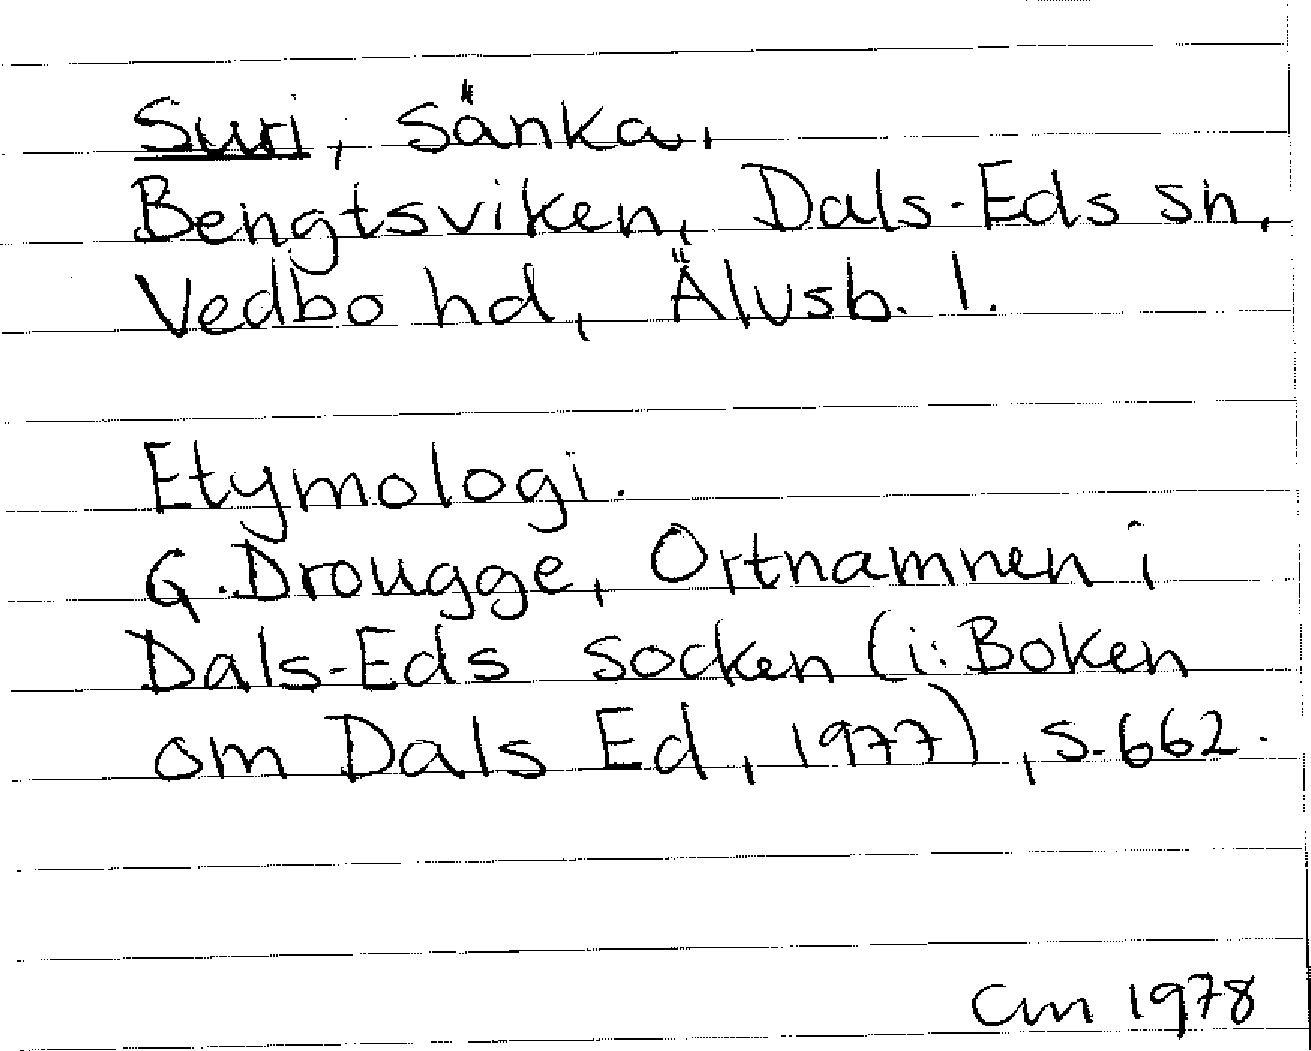 Suri, sänka.
Bengtsviken, Dals-Eds sn,
Vedbo hd, Älvsb. l.
Etymologi.
G. Drougge, Ortnamnen i
Dals-Eds socken (i: Boken
om Dals Ed, 1977), s. 662.
Cm 1978